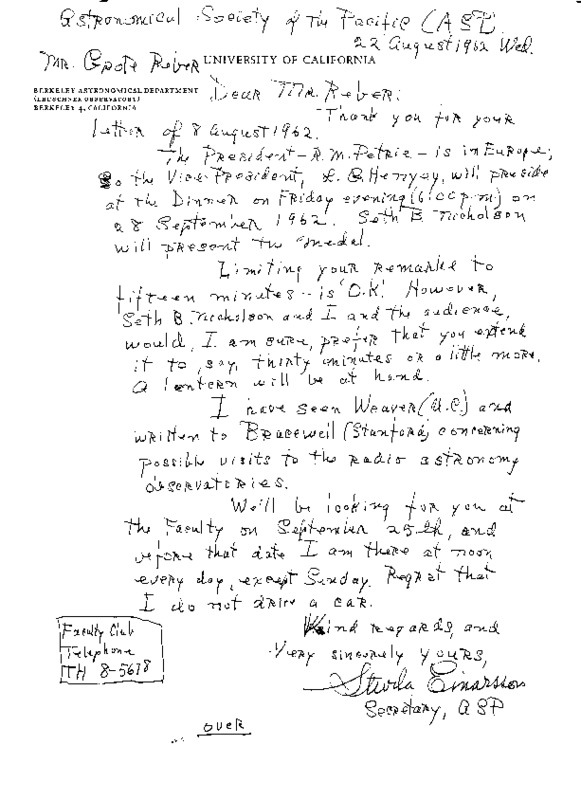 Astronomical Society of the Pacific (ASP)
22 August 1962 Wed.
Mr. Grote Reber
UNIVERSITY OF CALIFORNIA
BERKELEY ASTRONOMICAL DEPARTMENT
(LEUSCHNER OBSERVATORY)
BERKELEY 4, CALIFORNIA
Dear Mr. Reber:
Thank you for your
letter of 8 August 1962.
The President - R. M. Petrie - is in Europe;
so the Vice-President, L. G. Henyey, will preside
at the Dinner on Friday evening (6:00 p.m.) on
28 September 1962. Seth B. Nicholson
will present the medal.
Limiting your remarks to
fifteen minutes - is 'O.K.' However,
Seth B. Nicholson and I and the audience,
would, I am sure, prefer that you extend
it to, say, thirty minutes or a little more.
A lantern will be at hand.
I have seen Weaver (U.C.) and
written to Bracewell (Stanford) concerning
possible visits to the radio astronomy
observatories.
We'll be looking for you at
the Faculty on September 25th, and
before that date I am there at noon
every day, except Sunday. Regret that
I do not drive a car.
Kind regards, and
Very sincerely yours,
Sturla Einarsson
Secretary, ASP
Faculty Club
Telephone
TH 8-5678
over